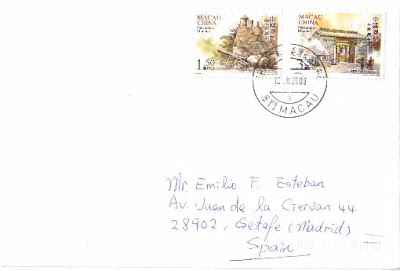 MACAU
CHINA
1.50
MACAU
CHINA
中國澳門
澳門 MACAU
Mr. Emilio F. Esteban
Av. Juan de la Ciervan 44
28902, Getafe (Madrid)
Spain